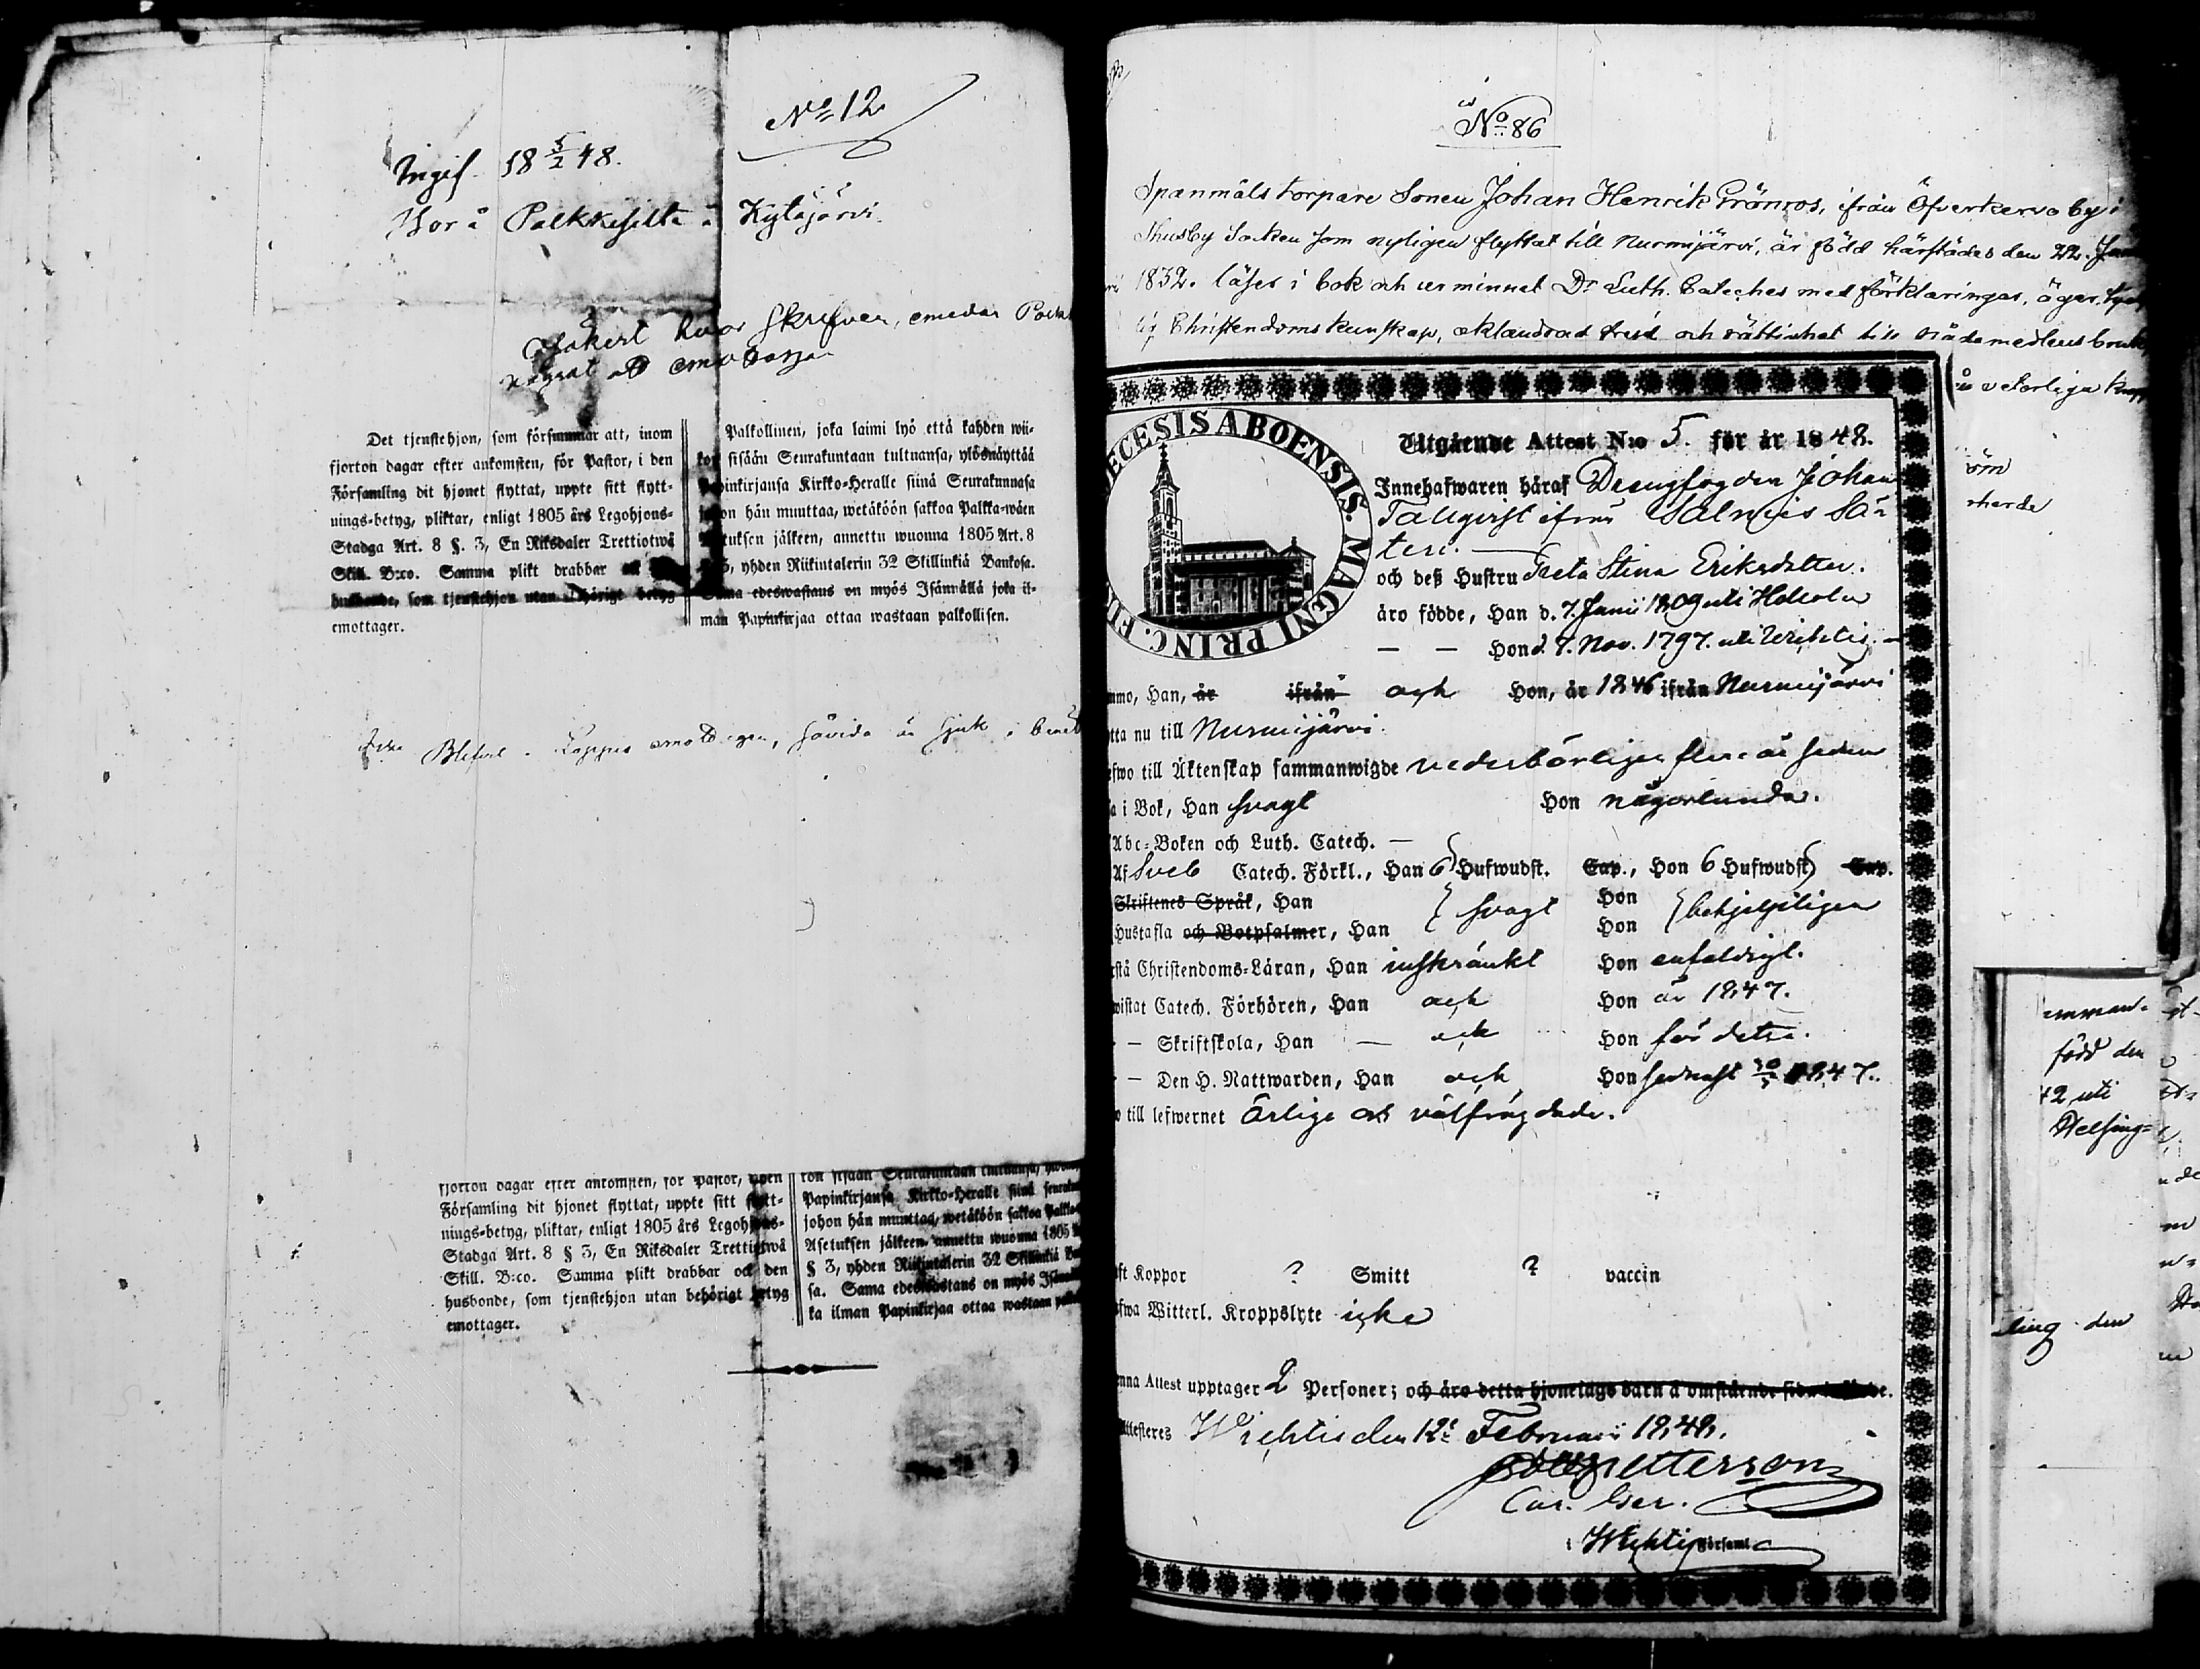 No 12
Ingif. 18 5/2 48.
Bor å Palkkisilta i Kytäjärvi.
osäkert hvar skrifven, emedan
vägrat att emottaga
Det tjenstehjon, som försummar att, inom
fjorton dagar efter ankomsten, för Pastor, i den
Församling dit hjonet flyttat, uppte sitt flytt-
nings-betyg, pliktar, enligt 1805 års Legohjons-
Stadga Art. 8 §. 3, En Riksdaler Trettiotwå
Skill. B:co. Samma plikt drabbar
husbonde, som tjenstehjon utan behörigt betyg
emottager.
Palkollinen, joka laimi lyö että kahden wii-
kon sisään Seurakuntaan tultuansa, ylösnäyttää
Papinkirjansa Kirkko-Heralle siinä Seurakunnasa
johon hän muuttaa, wetäköön sakkoa Palkka-wäen
Asetuksen jälkeen, annettu wuonna 1805 Art. 8
§ 3, yhden Riikintalerin 32 Skillinkiä Bankosa.
Sama edeswastaus on myös Isännällä joka il-
man Papinkirjaa ottaa wastaan palkollisen.
koppes såvida är sjuk i
fjorton dagar efter ankomsten, för Pastor, i den
Församling dit hjonet flyttat, uppte sitt flytt-
nings-betyg, pliktar, enligt 1805 års Legohjons-
Stadga Art. 8 § 3, En Riksdaler Trettiotwå
Skill. B:co. Samma plikt drabbar ock den
husbonde, som tjenstehjon utan behörigt betyg
emottager.
kon sisään Seurakuntaan tultuansa,
Papinkirjansa Kirkko-Heralle siinä
johon hän muuttaa, wetäköön sakkoa
Asetuksen jälkeen annettu wuonna 1805
§ 3, yhden Riikintalerin 32 Skillinkiä
sa. Sama edeswastaus on myös
ka ilman Papinkirjaa ottaa wastaan
No 86
Spanmåls torpare Sonen Johan Henrik Grönros, ifrån Öfverkervo by i
Thusby Socken som nyligen flyttat till Nurmijärvi, är född härstädes den 22.
1832. läser i bok och ur minnet Dr Luth. Cateches med förklaringar, äger
Christendoms kunskap, oklandrad frejd och rättighet till nådemedlens bruk
Utgående Attest N:o 5. för år 1848.
Innehafwaren häraf Drengfogden Johan
Tallqvist ifrån Salmis Sä-
teri.
och deß Hustru Greta Stina Eriksdotter.
äro födde, Han d. 7. Junii 1809 uti Hollola
— — Hon d. 7. Nov. 1797. uti Wichtis.
mmo, Han, är ifrån och Hon, är 1846 ifrån Nurmijärvi
tta nu till Nurmijärvi.
efwo till Äktenskap sammanwigde vederbörligen flere år sedan
sa i Bok, Han svagt Hon någorlunda.
Abc-Boken och Luth. Catech. —
Af Sveb Catech. Förkl., Han 6 Hufwudst. Cap., Hon 6 Hufwudst Cap.
Skriftenes Språk, Han Hon
Hustafla och Botpsalmer, Han svagt Hon behjelpligen
rstå Christendoms-Läran, Han inskränkt Hon enfaldigt.
wistat Catech. Förhören, Han och Hon år 1847.
— Skriftskola, Han — och Hon för detta.
— Den H. Nattwarden, Han och Hon sednast 30/5 1847.
o till lefwernet ärlige och välfrägdade.
ft Koppor ? Smitt ? vaccin
fwa Witterl. Kroppslyte icke
nna Attest upptager 2 Personer; och äro detta hjonelags barn å omstående sida
Attesteres Wichtis den 12: Februarii 1848.
Petterson
i Wichtis Församl.
rherde
född den
42, uti
Helsing=
ling den